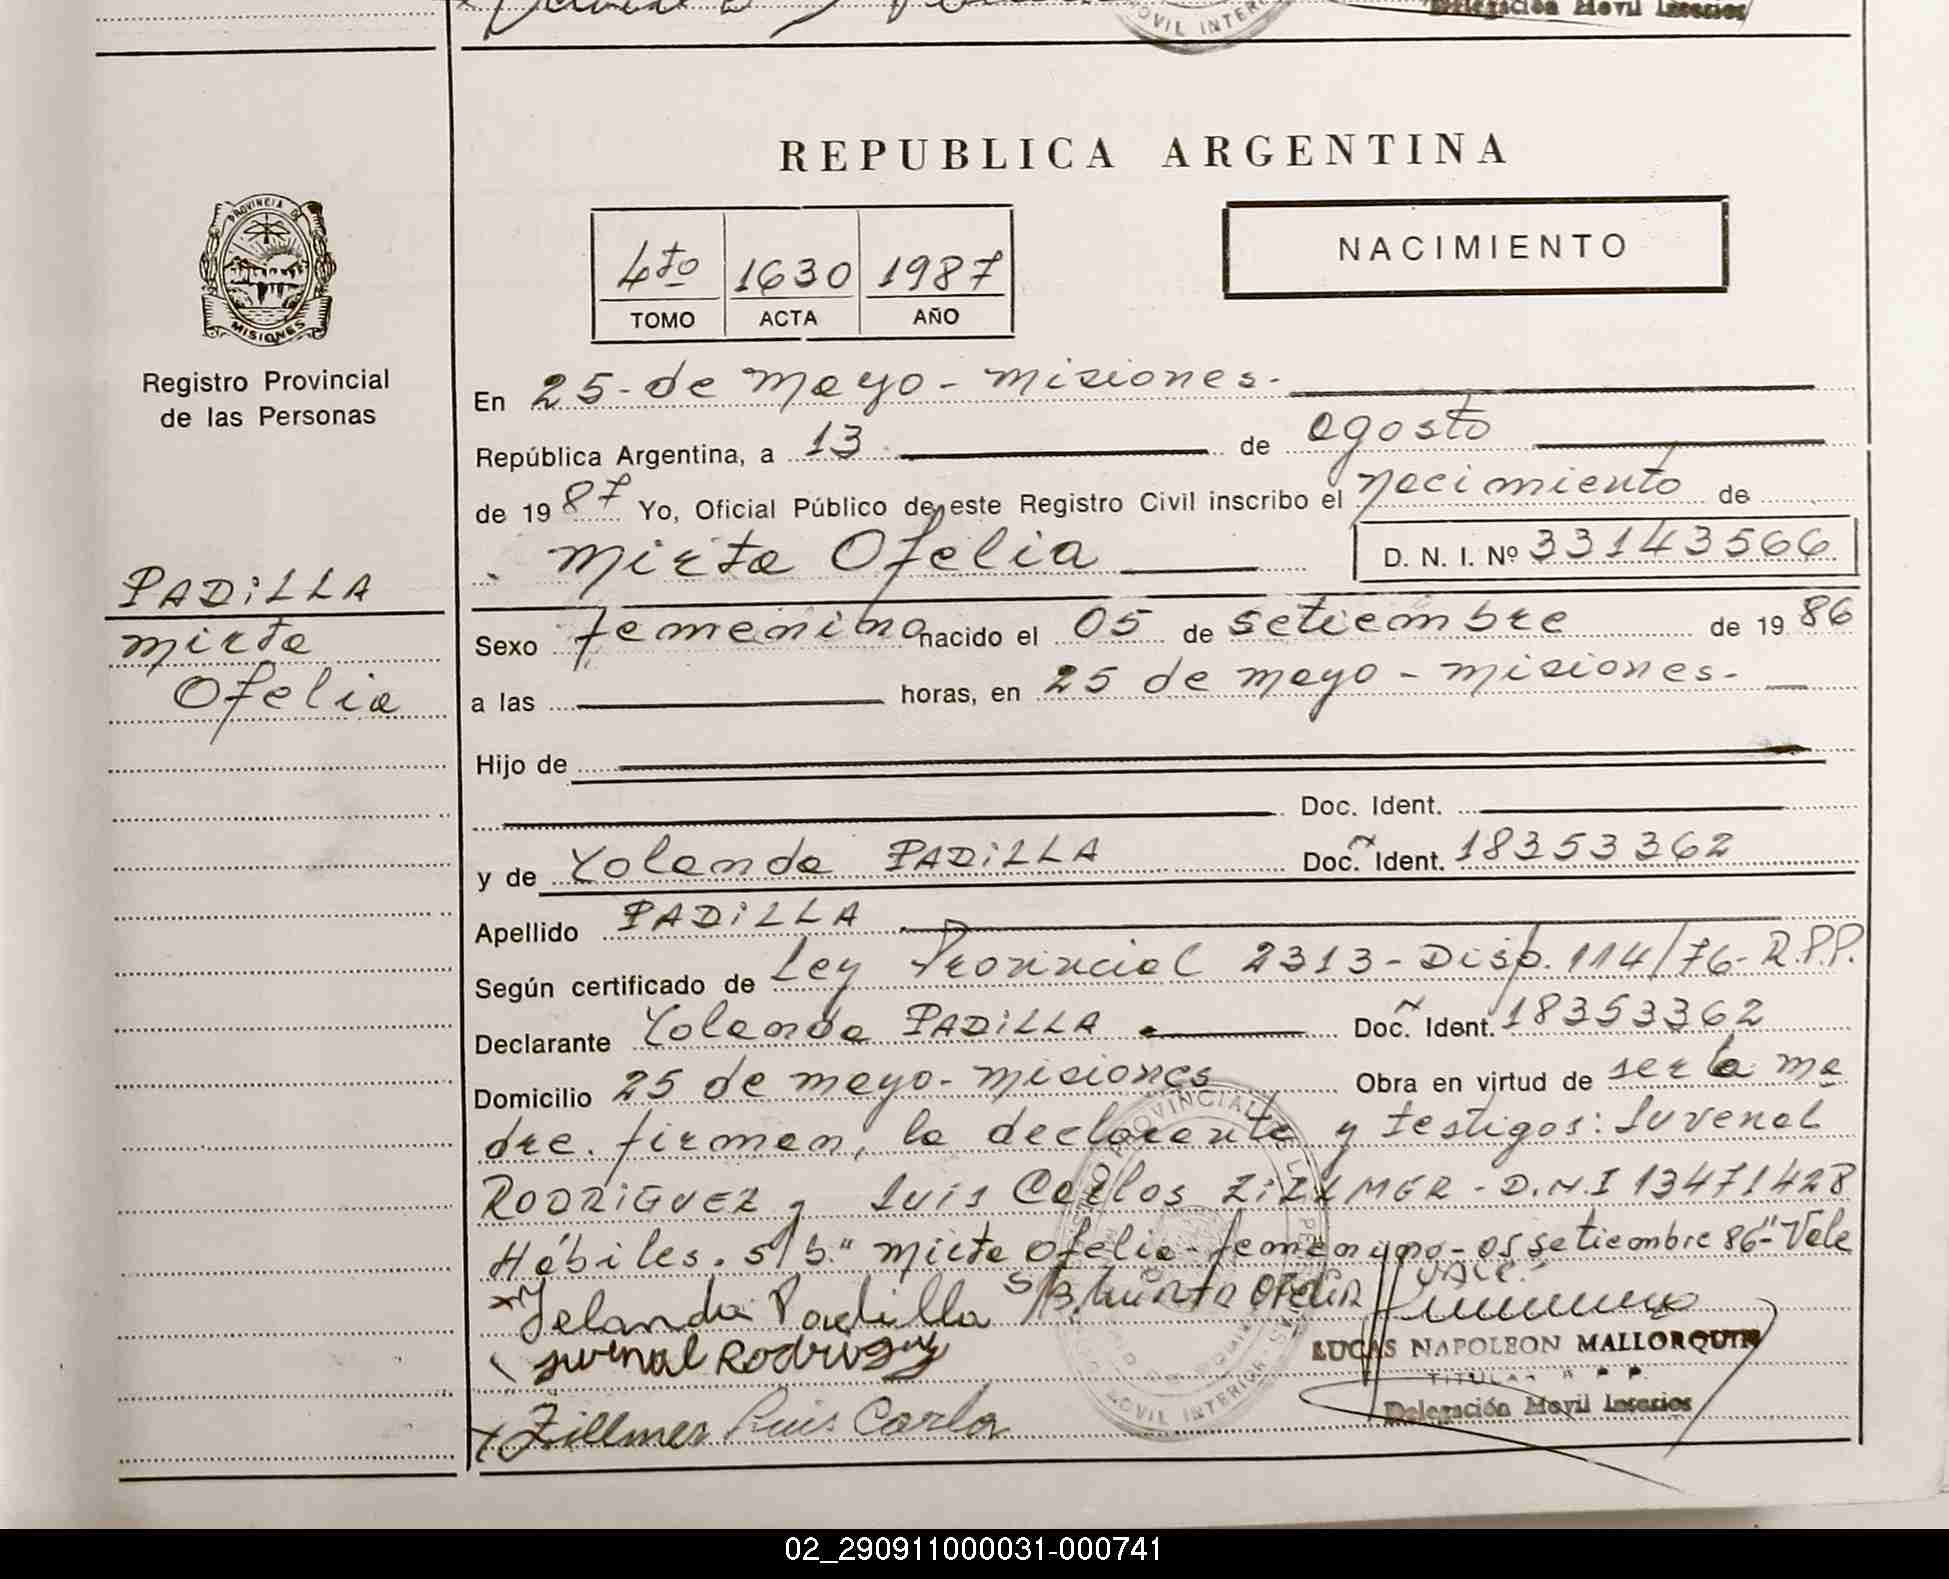 Delegación Movil Interior
MOVIL INTERIOR
REPUBLICA ARGENTINA
PROVINCIA DE
MISIONES
4to 1630 1987
TOMO ACTA AÑO
NACIMIENTO
Registro Provincial
de las Personas
En 25 de Mayo - Misiones.
República Argentina, a 13 de agosto
de 1987 Yo, Oficial Público de este Registro Civil inscribo el nacimiento de
Mirta Ofelia D. N. I. Nº 33143566
PADiLLA
Mirta
Ofelia
Sexo femenino nacido el 05 de setiembre de 1986
a las horas, en 25 de mayo - misiones.
Hijo de
Doc. Ident.
y de Yolanda PADiLLA Doc. Ident. 18353362
Apellido PADiLLA
Según certificado de Ley Provincial 2313 - Disp. 114/76 - R.P.P.
Declarante Yolanda PADiLLA Doc. Ident. 18353362
Domicilio 25 de mayo - misiones Obra en virtud de ser la ma
dre. firman, la declarante y testigos: Juvenal
RODRiGUEZ y Luis Carlos ZiLLMER - D.N.I 13471428
Hábiles. S/b." Mirta Ofelia - femenino - 05 setiembre 86" Vale
Yolanda Padilla S/B. Mirta OFELIA VALE.
Juvenal Rodriguez
LUCAS NAPOLEON MALLORQUIN
TITULAR R P P.
Zillmer Luis Carlos
Delegación Movil Interior
02_290911000031-000741